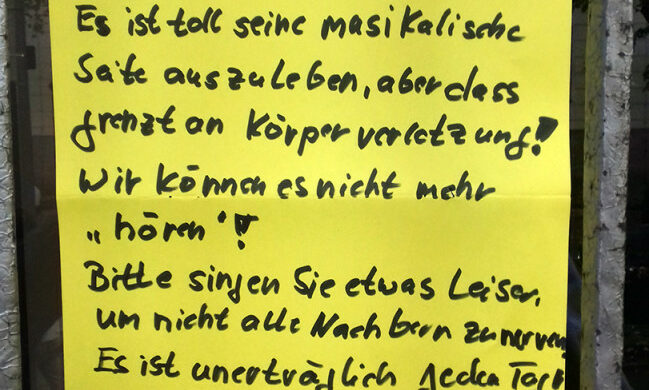 Es ist toll seine musikalische
Seite auszuleben, aber dass
grenzt an Körperverletzung!
Wir können es nicht mehr
„hören"!
Bitte singen Sie etwas Leiser,
um nicht alle Nachbern zu nerven
Es ist unerträglich